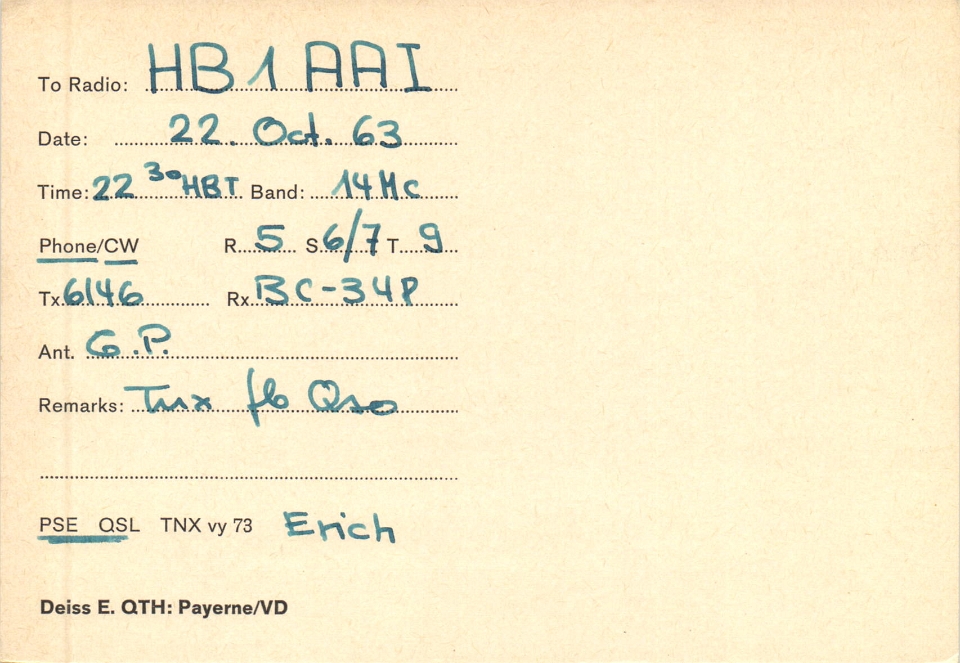 To Radio: HB1AAI
Date: 22. Oct. 63
Time: 22 30 HBT Band: 14 Mc
Phone/CW R. 5 S. 6/7 T. 9
Tx 6146 Rx BC-348
Ant. G.P.
Remarks: Tnx fb Qso
PSE QSL TNX vy 73 Erich
Deiss E. QTH: Payerne/VD